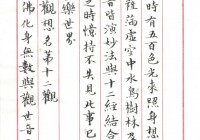 時有五百色光來照身想
薩滿虛空中水鳥樹林及
音皆演妙法與十二經結合
之時憶持不失見此事已
樂世界
觀想名第十二觀
佛化身無數與觀世音